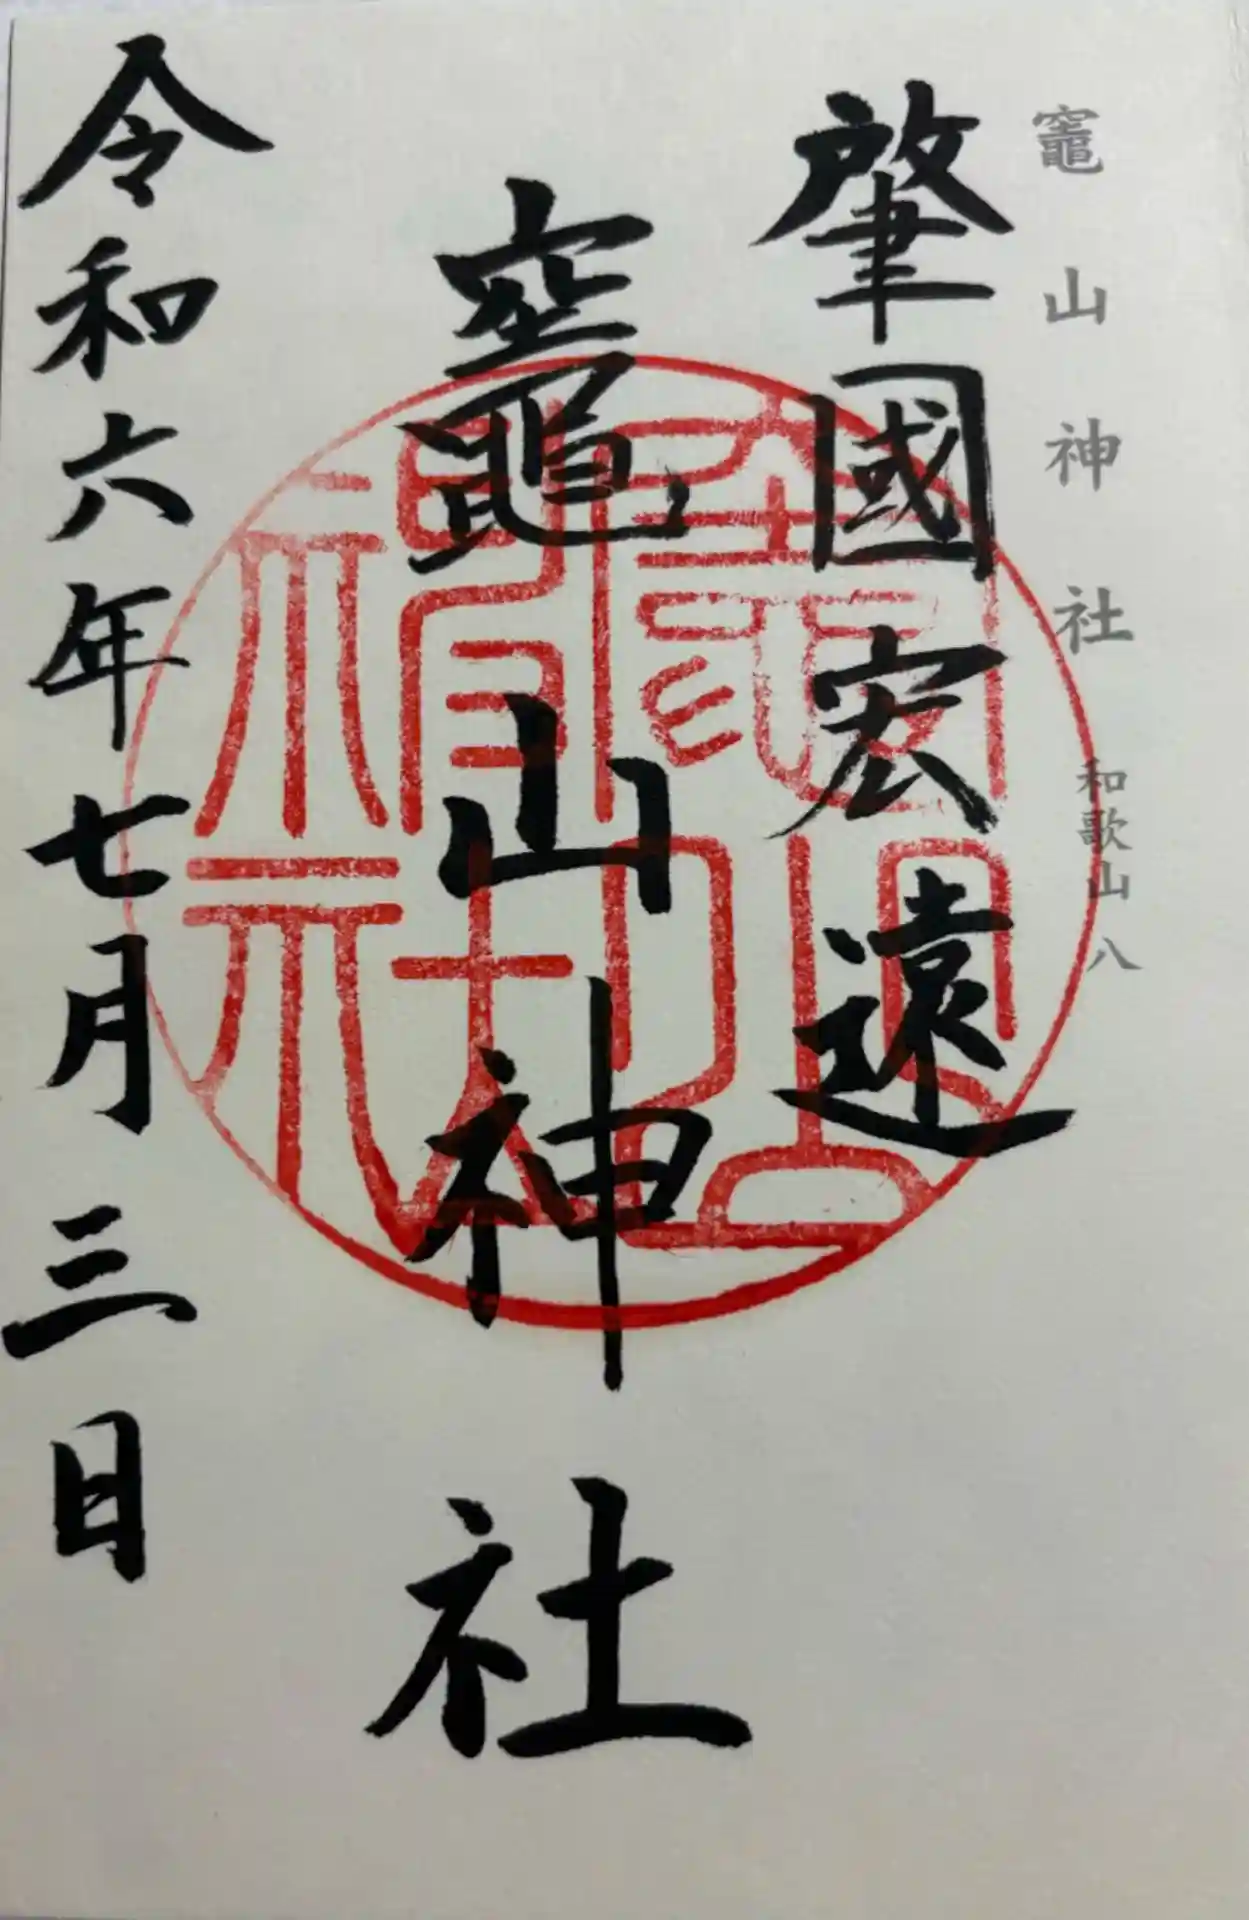 竈山神社 和歌山 八
肇國宏遠
竈山神社
令和六年七月三日